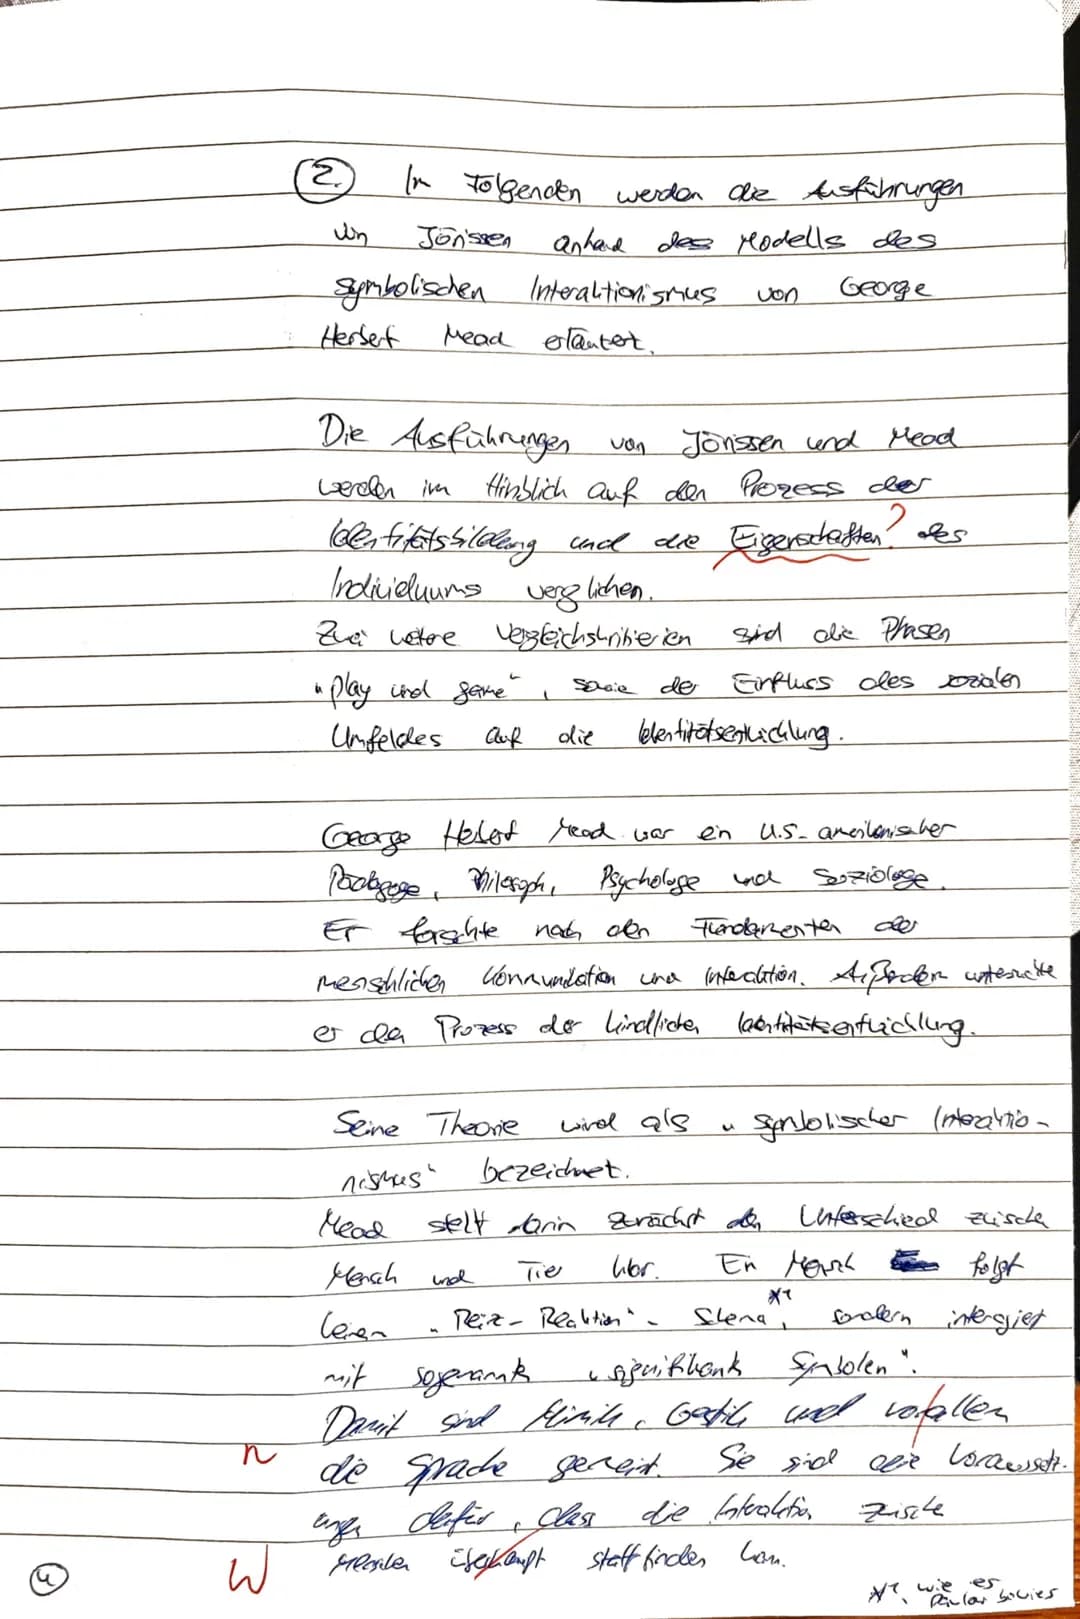 2. Im Folgenden werden die Ausführungen
von Jörissen anhand des Modells des
symbolischen Interaktionismus von George
Herbert Mead erläutert.
Die Ausführungen von Jörissen und Mead
werden im Hinblick auf den Prozess der
Identitätsbildung und die Eigenschaften? des
Individuums verglichen.
Zwei weitere Vergleichskriterien sind die Phasen
"play und game", sowie der Einfluss des sozialen
Umfeldes auf die Identitätsentwicklung.
George Herbert Mead war ein U.S-amerikanischer
Pädagoge, Philosoph, Psychologe und Soziologe.
Er forschte nach den Fundamenten der
menschlichen Kommunikation und Interaktion. Außerdem untersuchte
er den Prozess der kindlichen Identitätsentwicklung.
Seine Theorie wird als "symbolischer Interaktio-
nismus" bezeichnet.
Mead stellt darin zunächst den Unterschied zwischen
Mensch und Tier klar. Ein Mensch folgt
keinen "Reiz-Reaktion"-Schema, sondern interagiert
mit sogenannte "signifikante Symbolen".
Damit sind Mimik, Gestik und vorallen
n die Sprache gemeint. Sie sind die Voraussetz-
ungen dafür, dass die Interaktion zwischen
W Menschen überhaupt stattfinden kann.
4
wie es Pawlow bewies